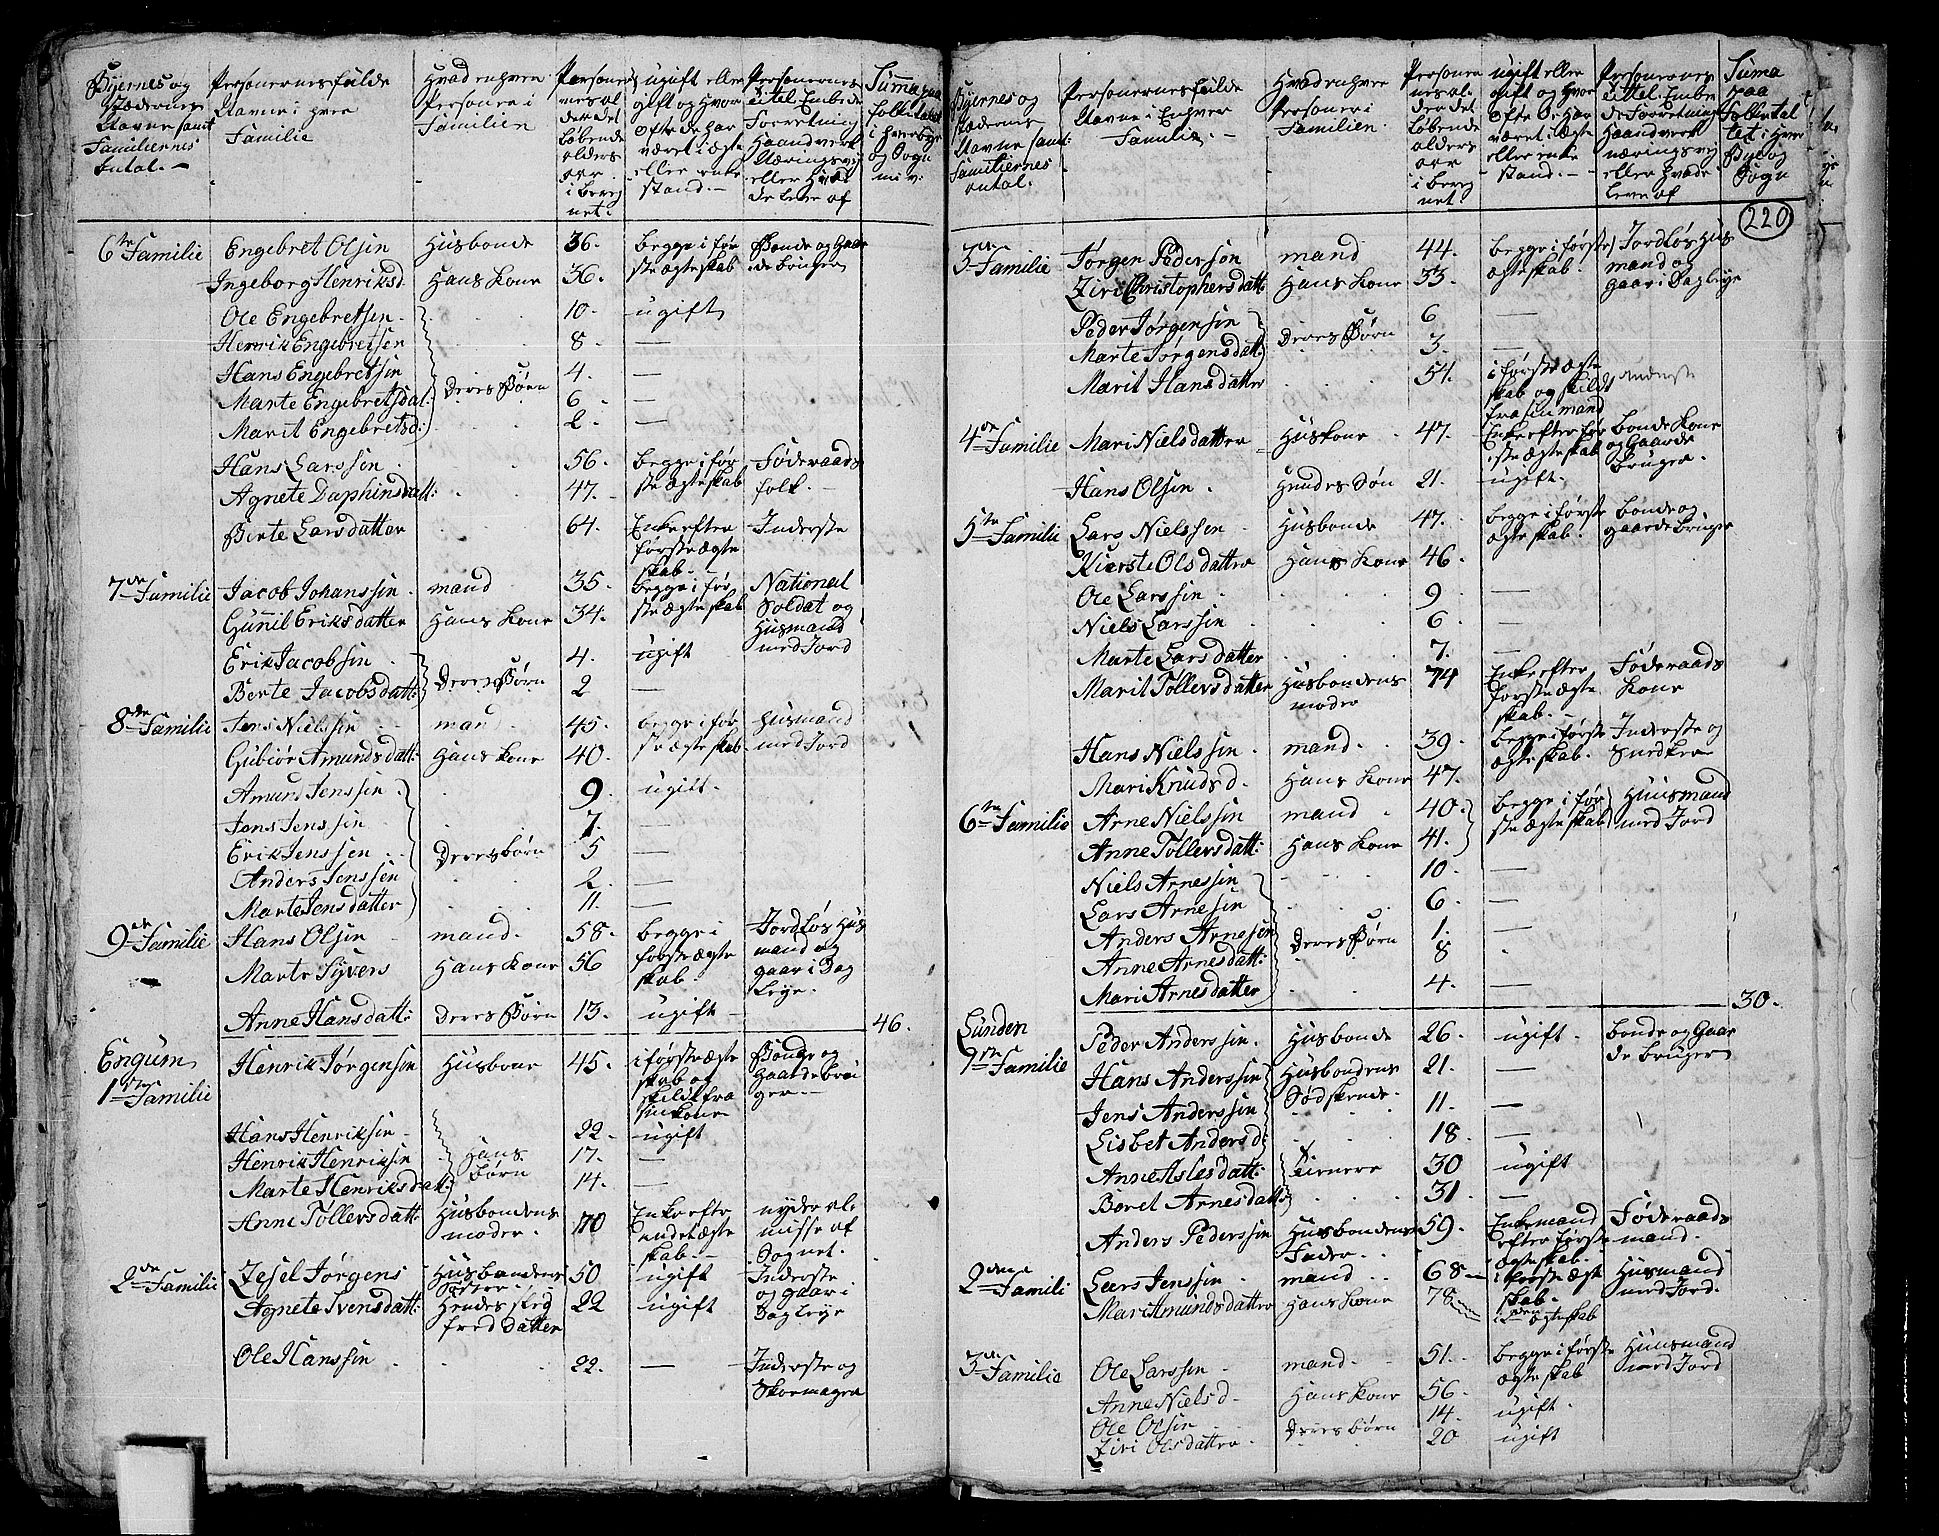 Byernes og Stædernes Navne samt Familiernes Antal. Personernes fulde Navne i hver Familie Hvad enhver Persone i Familien Personernes alder det løbende alders aar i bereg net. ugift eller gift og hvor ofte de har været i ægte eller enke stand. Personernes titel Embede Forretning Haandverk Næringsvej eller hvad de leve af Summa paa folketallet i hver bye og Sogn
6te Familie Engebret Olsen Husbonde 36. begge i før Bonde og Gaar
Ingeborg Henriksd. Hans Kone 36. ste ægteskab de bruger
Ole Engebretsen. 10. ugift
Henrik Engebretsen 8. —
Hans Engebretsen 4. —
Marte Engebretsdat: Deres Børn 6 —
Marit Engebretsd: 2. —
Hans Larssen 56. begge i før Føderaads
Agnete Daphinsdatt: 47. ste ægteskab folk.
Berte Larsdatter 64. Enke efter første ægte skab. Inderste
7de Familie Jacob Johanssen. mand 35. begge i før National
Gunnil Eriksdatter Hans Kone 34. ste ægteskab Soldat og Husmand
Erik Jacobsen 4. ugift med Jord
Berte Jacobsdatt: Deres Børn 2 —
8de Familie Jens Nielssen mand 45. begge i før Husmand
Gubiør Amundsdatt: Hans Kone 40. ste ægteskab. med Jord
Amund Jenssen. 9. ugift.
Jens Jenssen 7. —
Erik Jenssen Deres børn 5 —
Anders Jenssen 2. —
Marte Jensdatter 11. —
9de Familie Hans Olsen mand. 58. begge i Jordløs Hus
Marte Syvers Hans Kone 56 første ægte skab. mand og gaar i Dag Leye.
Anne Hansdatt: Deres Børn 13. ugift 46.
Engum
1ste Familie Henrik Jørgensen Husbone 45. i første ægte skab og skildt fra sin kone Bonde og Gaarde bru ger.
Hans Henriksen 22. ugift
Henrik Henriksen Hans 17. —
Marte Henriksdatt: børn 14. —
Anne Tollersdatt: Husbondens moder. 70 Enke efter andet ægte skab. nyder al misse af Sognet.
2de Familie Zesel Jørgens Husbondens Søster 50 ugift Inderste
Agnete Svensdatt: Hendes slegfred datter 22 ugift og gaar i Dagleye
Ole Hanssen 22. — Inderste og Skomager
Byernes og Stædernes Navne samt Familiernes antal. Personernes fulde Navne i Enhver Familie. Hvad enhver Persone i Familien. Personernes alder det løbende alders aar i bereg net. ugift eller gift og hvor ofte de har været i ægte eller enke stand. Personernes titel Embede Forretning Haandverk næringsvej eller hvad de leve af Suma paa Folketallet i hver Bye og Sogn
220
3de Familie Jørgen Pedersøn mand 44. begge i første Jordløs Hus
Ziri Christophersdatt: Hans Kone 33. ægteskab. mand og gaar i Dagleye
Peder Jørgensen 6 —
Marte Jørgensdatt: Deres Børn 3. —
Marit Hansdatter 54. i første ægte skab og skildt fra sin mand inderste
4de Familie Mari Nielsdatter Huskone 47. Enke efter før ste ægteskab bonde Kone og Gaarde bruger.
Hans Olsen. Hendes Søn 21. ugift.
5te Familie Lars Nielssen Husbonde 47. begge i første bonde og
Kierste Olsdatter Hans Kone 46. ægteskab. gaardebruger
Ole Larssen 9 —
Niels Larssen 6 —
Marte Larsdatter 7. —
Marit Tollersdatter Husbondens moder 74 Enke efter første ægte skab. Føderaads Kone
Hans Nielssen mand. 39. begge i første Inderste og
Mari Knudsd. Hans Kone 47. ægteskab. Snedker
6te Familie Arne Nielssen mand 40. begge i før Huusmand
Anne Tollersdatt: Hans Kone 41. ste ægteskab med Jord
Niels Arnessen 10. —
Lars Arnesen 6. —
Anders Arnesen Deres Børn 1. —
Anne Arnesdatt: 8
Mari Arnesdatter 4. — 30.
Lunden
1ste Familie Peder Anderssen. Husbonde 26. ugift. bonde og Gaar de bruger
Hans Anderssen Husbondens 21. —
Jens Anderssen Sødskende. 11. —
Lisbet Andersd: 18. —
Anne Aslesdatt: tienere 30 ugift
Boret Arnesdatt: 31. —
Anders Pederssen Husbondens Fader 59. Enkemand efter første ægteskab. Føderaads mand.
2den Familie Lars Jenssen mand 68 i første ægt skab. Husmand
Mari Amundsdatter Hans Kone 78 2den ægteskab med Jord.
3de Familie Ole Larssen mand. 51. begge i første Huusmand
Anne Nielsd. Hans Kone 56. ægteskab med Jord
Ole Olsen Deres børn 14. ugift.
Ziri Olsdatter 20 ugift